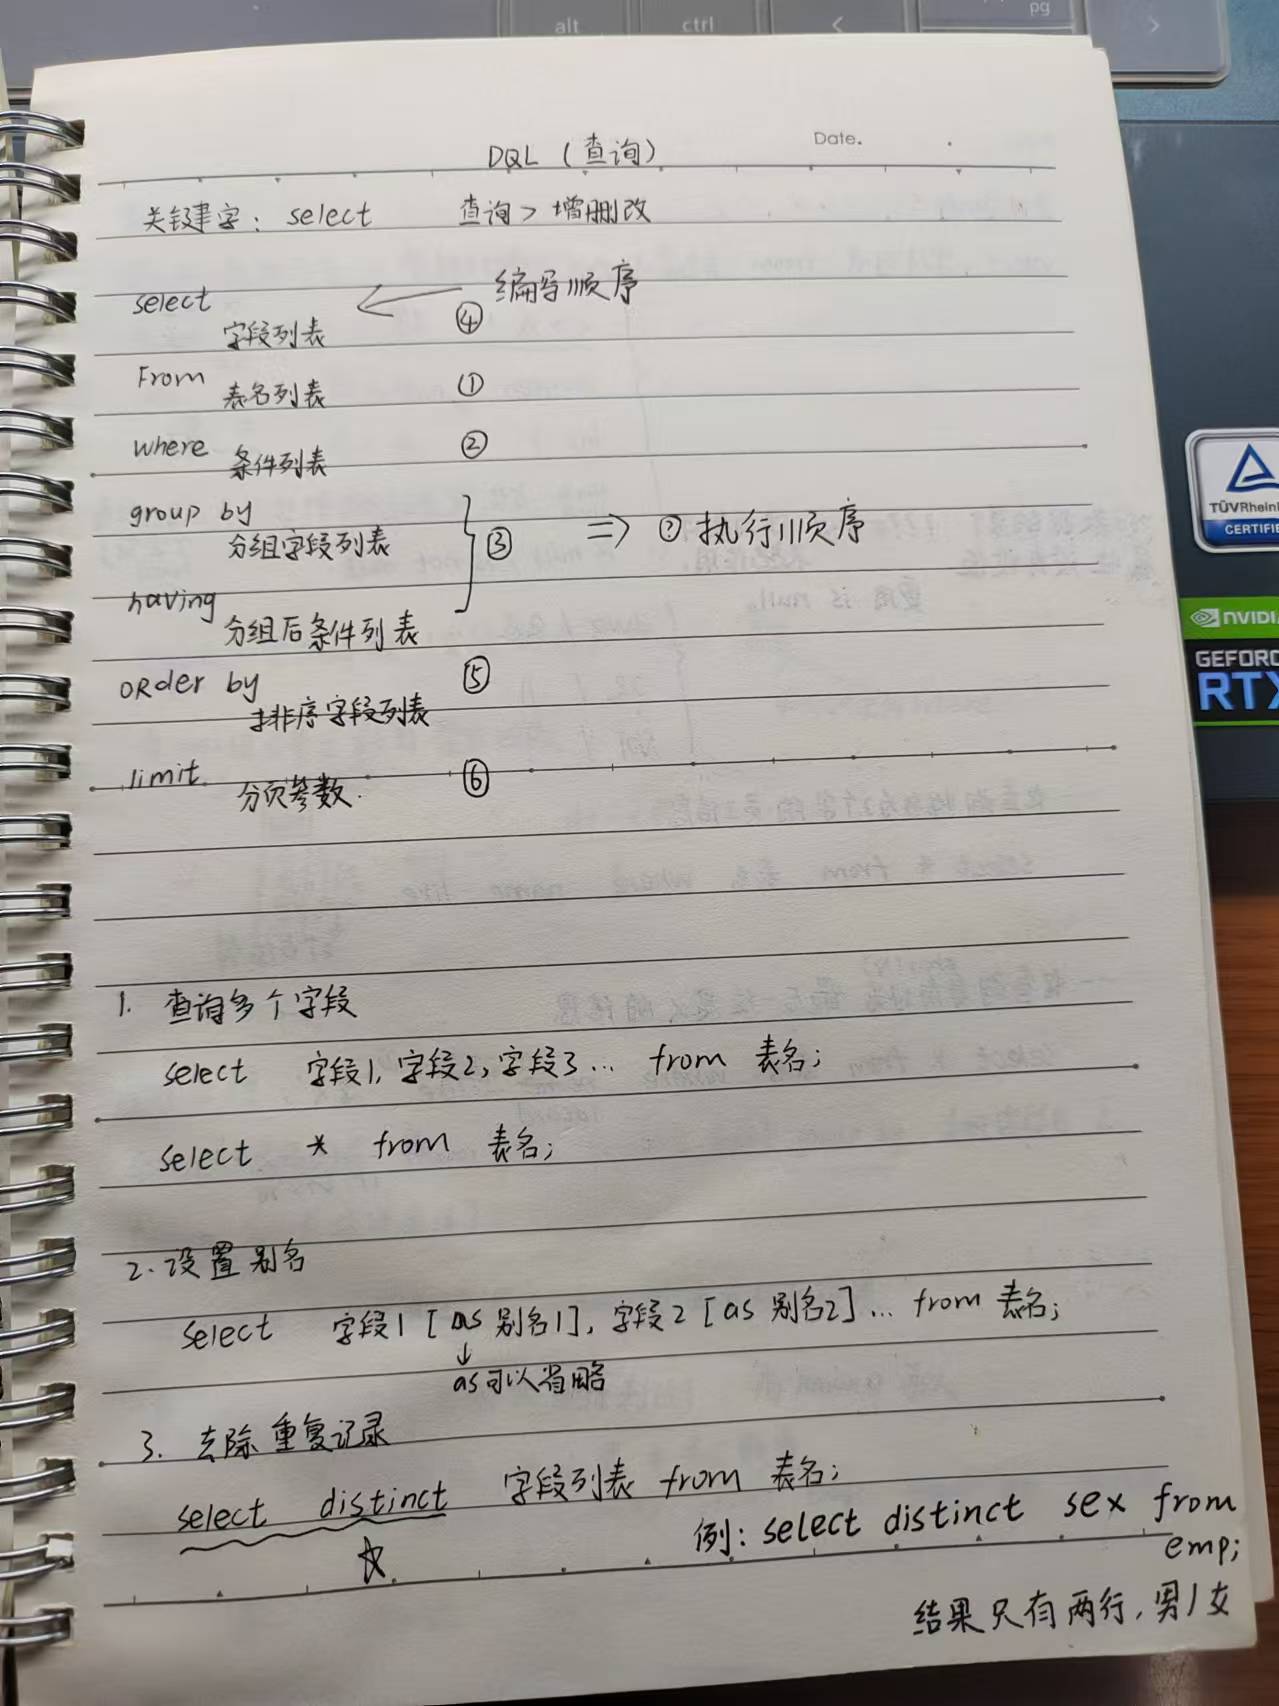 alt ctrl < pg >
Date.
DQL（查询）
关键字：select 查询>增删改
select ← 编写顺序
字段列表 ④
From 表名列表 ①
where 条件列表 ②
group by
分组字段列表 ③ ⇒ 执行顺序
having
分组后条件列表
ORder by ⑤
排序字段列表
limit 分页参数. ⑥
1. 查询多个字段
select 字段1, 字段2, 字段3... from 表名;
select * from 表名;
2. 设置别名
select 字段1 [as 别名1], 字段2 [as 别名2]... from 表名;
↓
as可以省略
3. 去除重复记录
select distinct 字段列表 from 表名;
☆
例: select distinct sex from
emp;
结果只有两行, 男/女
TÜVRheinl
CERTIFIE
NVIDIA
GEFORC
RTX